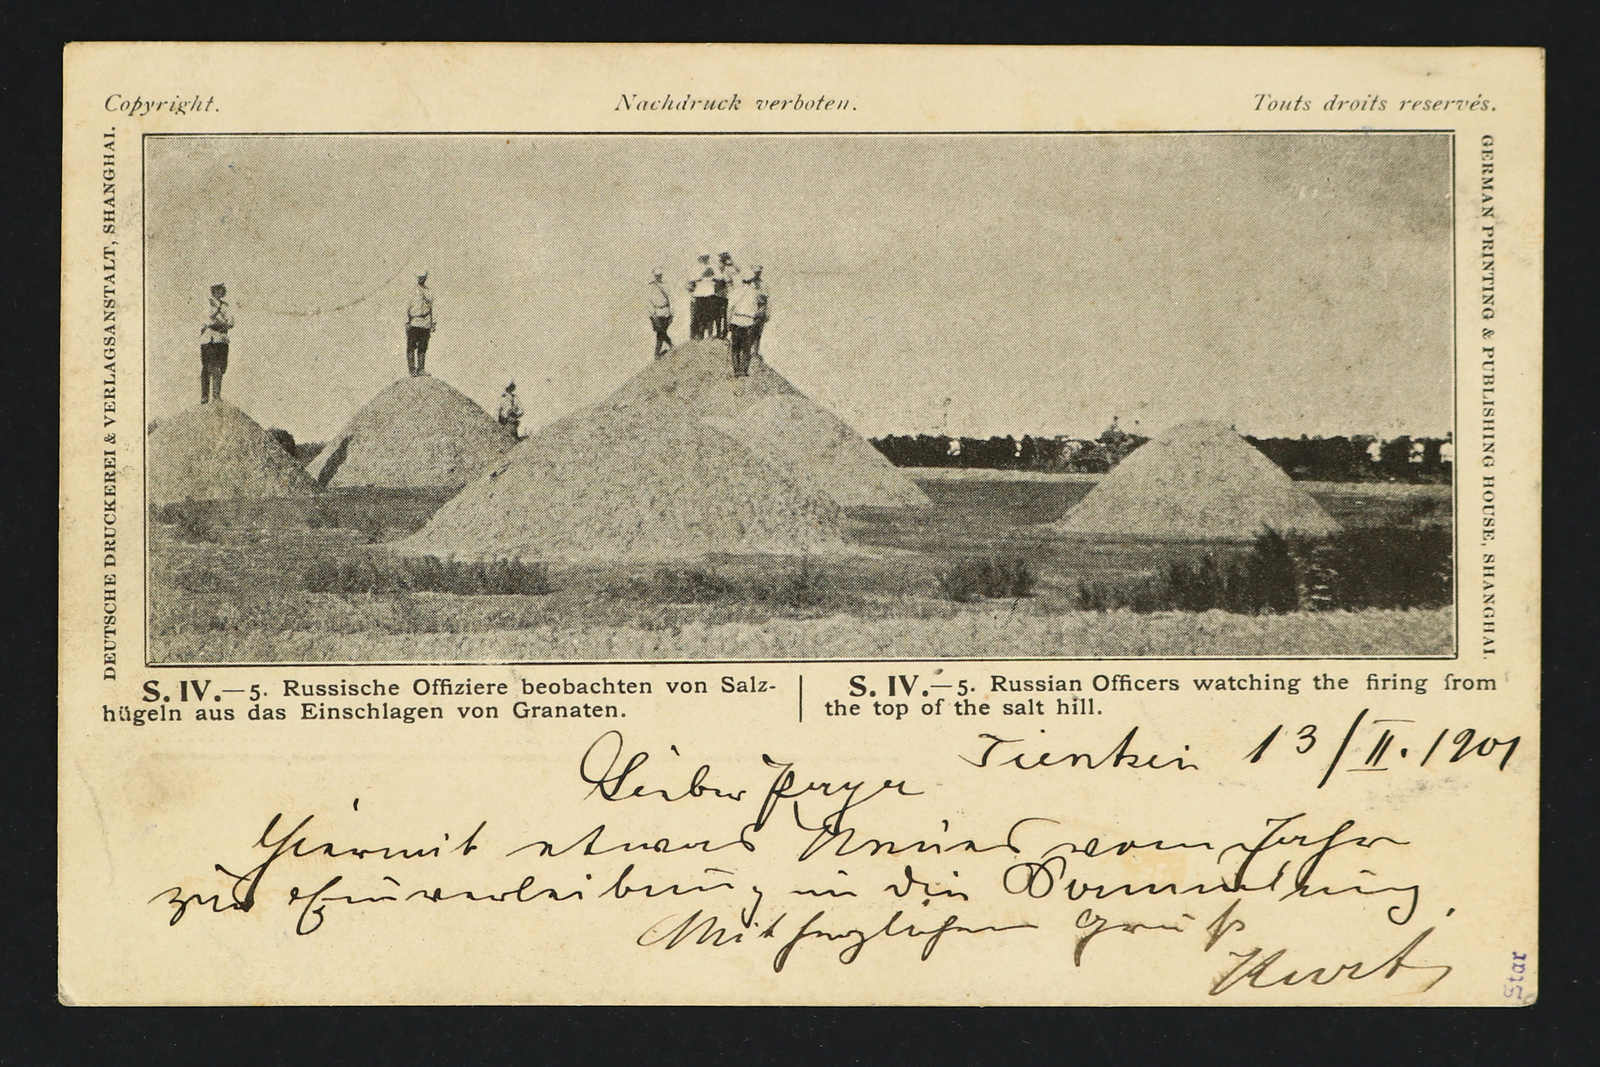 Copyright.
Nachdruck verboten.
Touts droits reservés.
DEUTSCHE DRUCKEREI & VERLAGSANSTALT, SHANGHAI.
GERMAN PRINTING & PUBLISHING HOUSE, SHANGHAI.
S. IV.—5. Russische Offiziere beobachten von Salz-
hügeln aus das Einschlagen von Granaten.
S. IV.—5. Russian Officers watching the firing from
the top of the salt hill.
Tientsin 13/II. 1901
Lieber
Hiermit etwas Neues vom
zur Einverleibung in die Sammlung.
Mit herzlichem Gruß
Kurt
Star